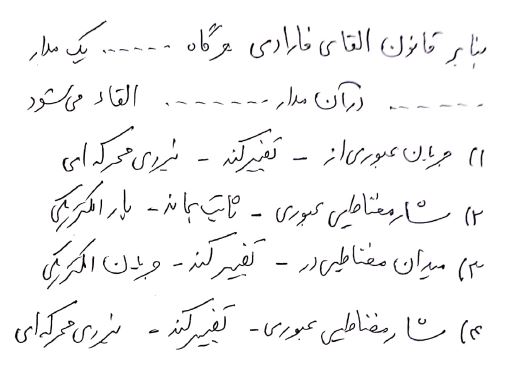 بنا بر قانون القای فارادی هرگاه ....... یک مدار
....... در آن مدار ........ القاء می‌شود
۱) جریان عبوری از - تغییر کند - نیروی محرکه ای
۲) شار مغناطیسی عبوری - ثابت بماند - بار الکتریکی
۳) میدان مغناطیسی در - تغییر کند - جریان الکتریکی
۴) شار مغناطیسی عبوری - تغییر کند - نیروی محرکه ای